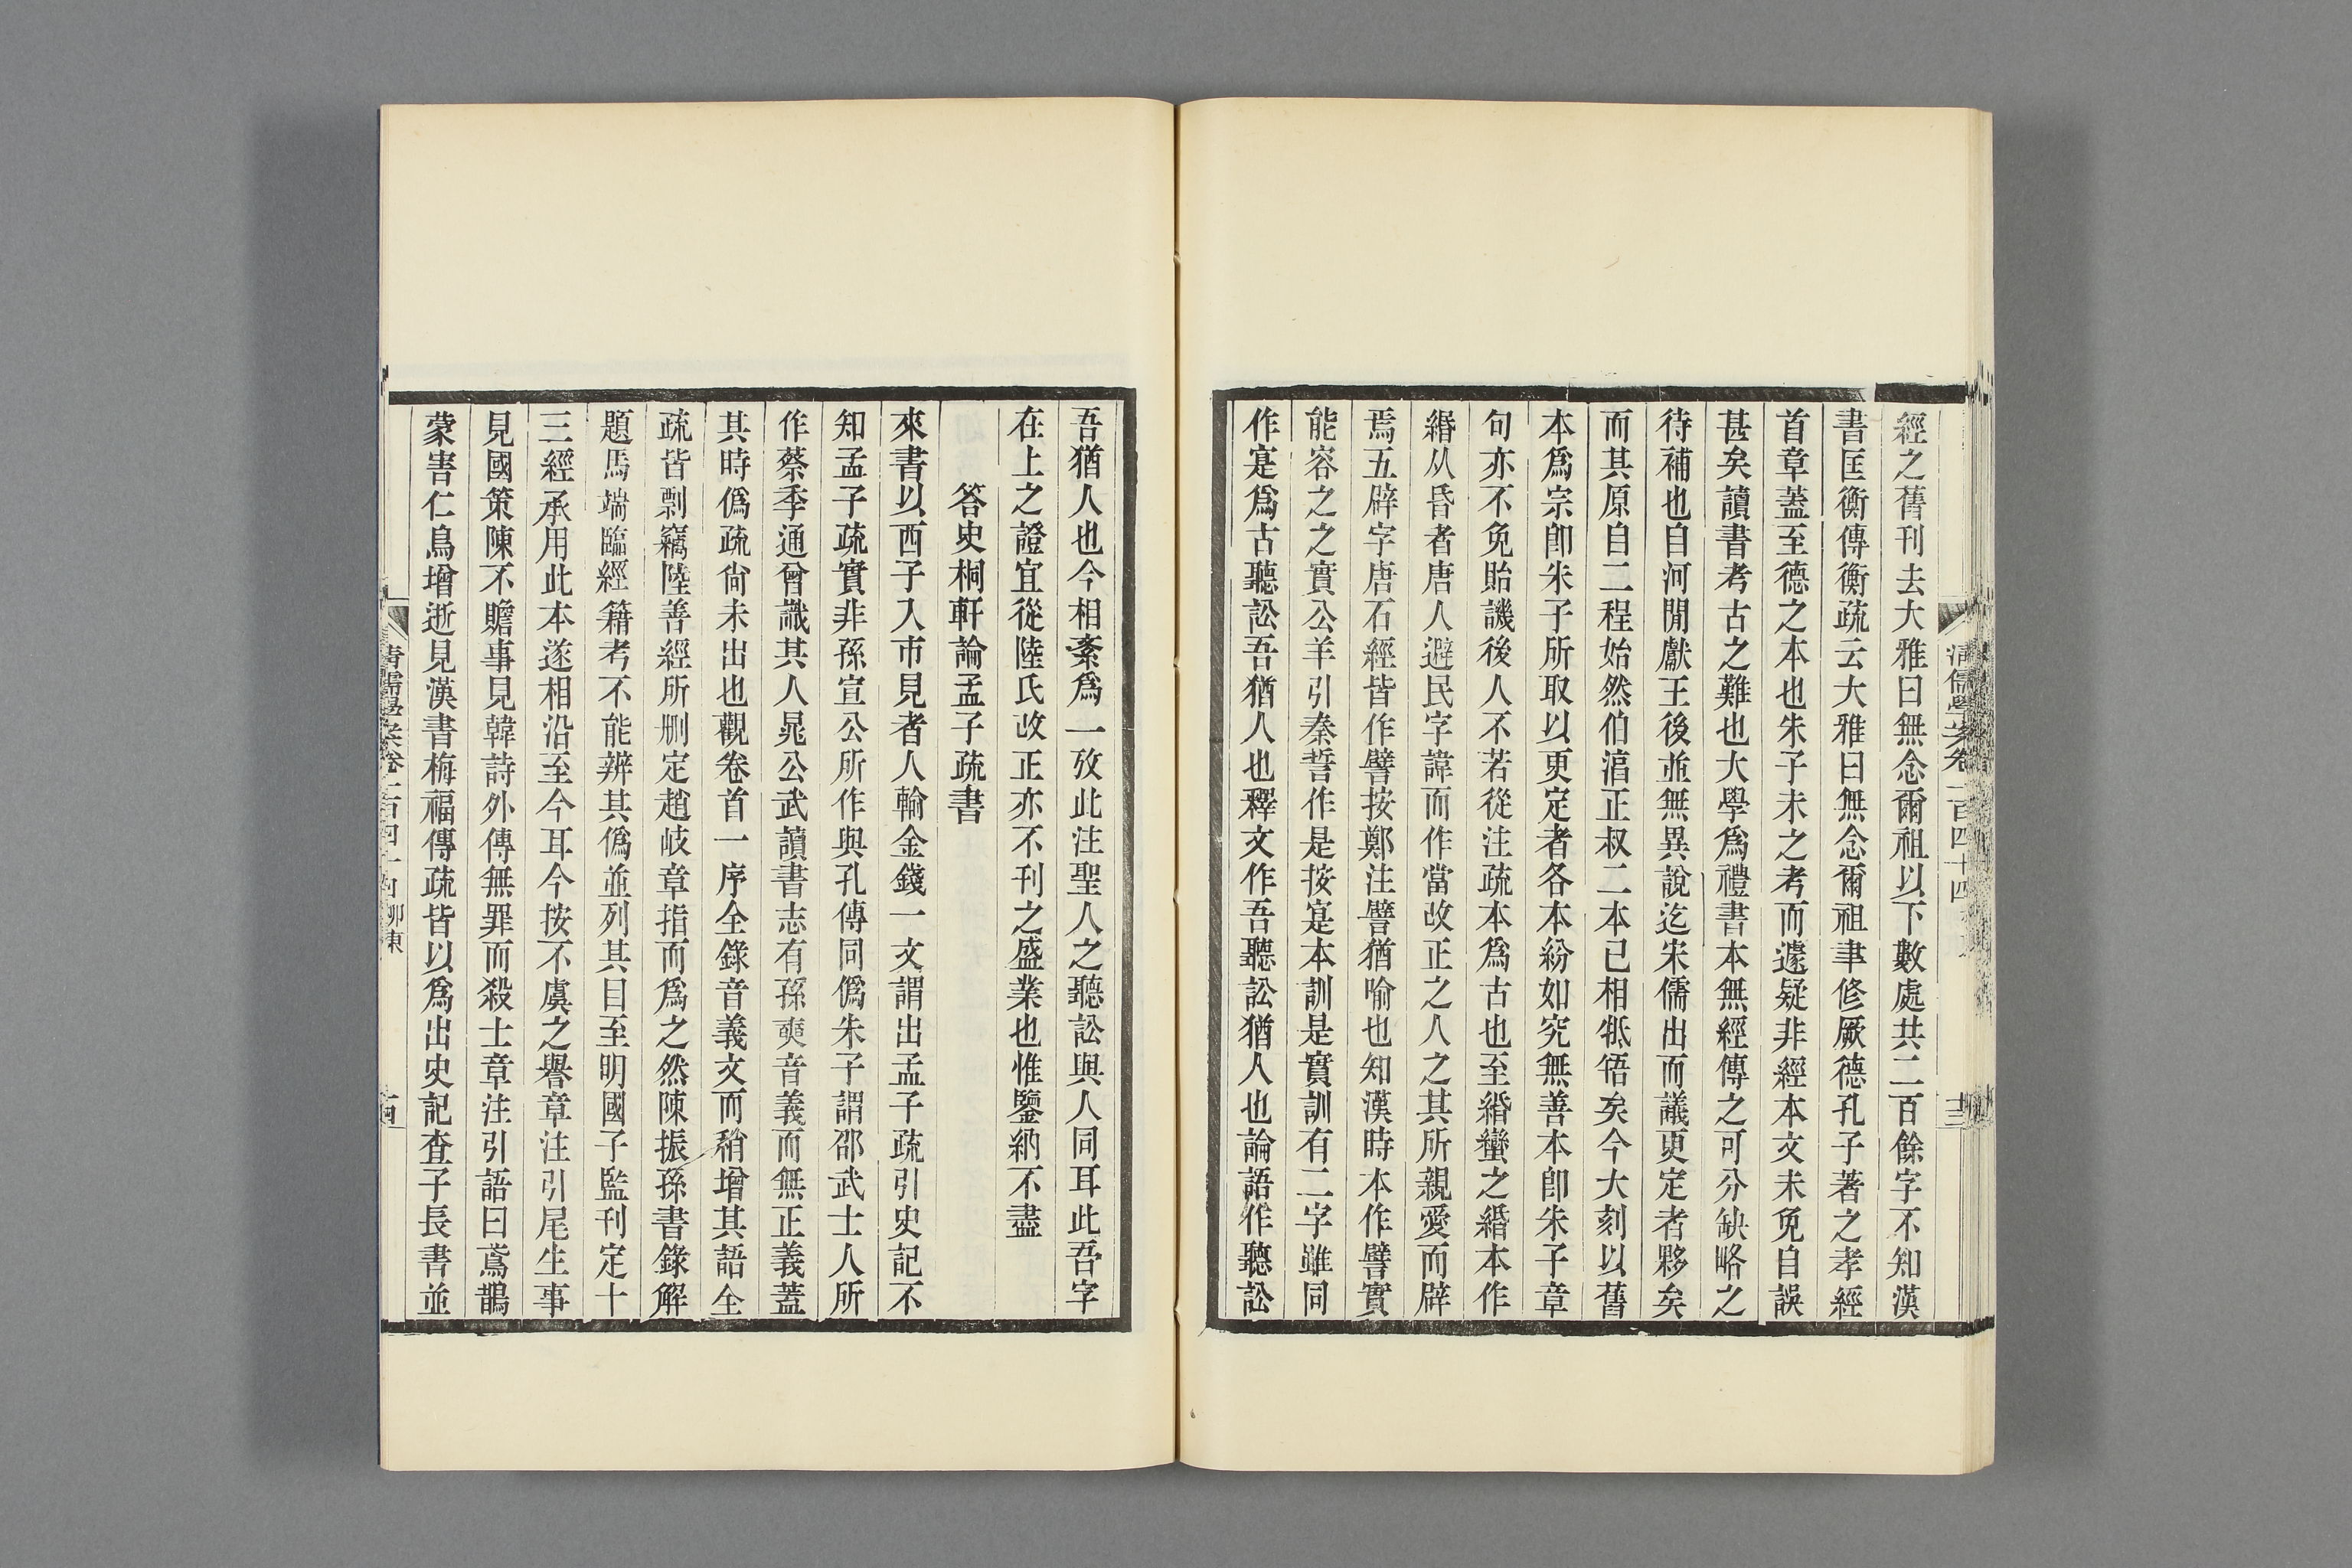 經之舊刊去大雅曰無念爾祖以下數處共二百餘字不知漢
書匡衡傳衡疏云大雅曰無念爾祖聿修厥德孔子著之孝經
首章蓋至德之本也朱子未之考而遽疑非經本文未免自誤
甚矣讀書考古之難也大學爲禮書本無經傳之可分缺略之
待補也自河閒獻王後並無異說迄宋儒出而議更定者夥矣
而其原自二程始然伯湻正叔二本已相牴啎矣今大刻以舊
本爲宗卽朱子所取以更定者各本紛如究無善本卽朱子章
句亦不免貽譏後人不若從注疏本爲古也至緡蠻之緡本作
緡从昏者唐人避民字諱而作當改正之人之其所親愛而辟
焉五辟字唐石經皆作譬按鄭注譬猶喻也知漢時本作譬實
能容之之實公羊引秦誓作是按寔本訓是實訓有二字雖同
作寔爲古聽訟吾猶人也釋文作吾聽訟猶人也論語作聽訟
吾猶人也今相紊爲一攷此注聖人之聽訟與人同耳此吾字
在上之證宜從陸氏改正亦不刊之盛業也惟鑒納不盡
答史桐軒論孟子疏書
來書以西子入市見者人輸金錢一文謂出孟子疏引史記不
知孟子疏實非孫宣公所作與孔傳同僞朱子謂邵武士人所
作蔡季通曾識其人晁公武讀書志有孫奭音義而無正義蓋
其時僞疏尙未出也觀卷首一序全錄音義文而稍增其語全
疏皆剽竊陸善經所刪定趙岐章指而爲之然陳振孫書錄解
題馬端臨經籍考不能辨其僞並列其目至明國子監刊定十
三經承用此本遂相沿至今耳今按不虞之譽章注引尾生事
見國策陳不贍事見韓詩外傳無罪而殺士章注引語曰鳶鵲
蒙害仁鳥增逝見漢書梅福傳疏皆以爲出史記查子長書並
清儒學案卷一百四十四 柳東
十四